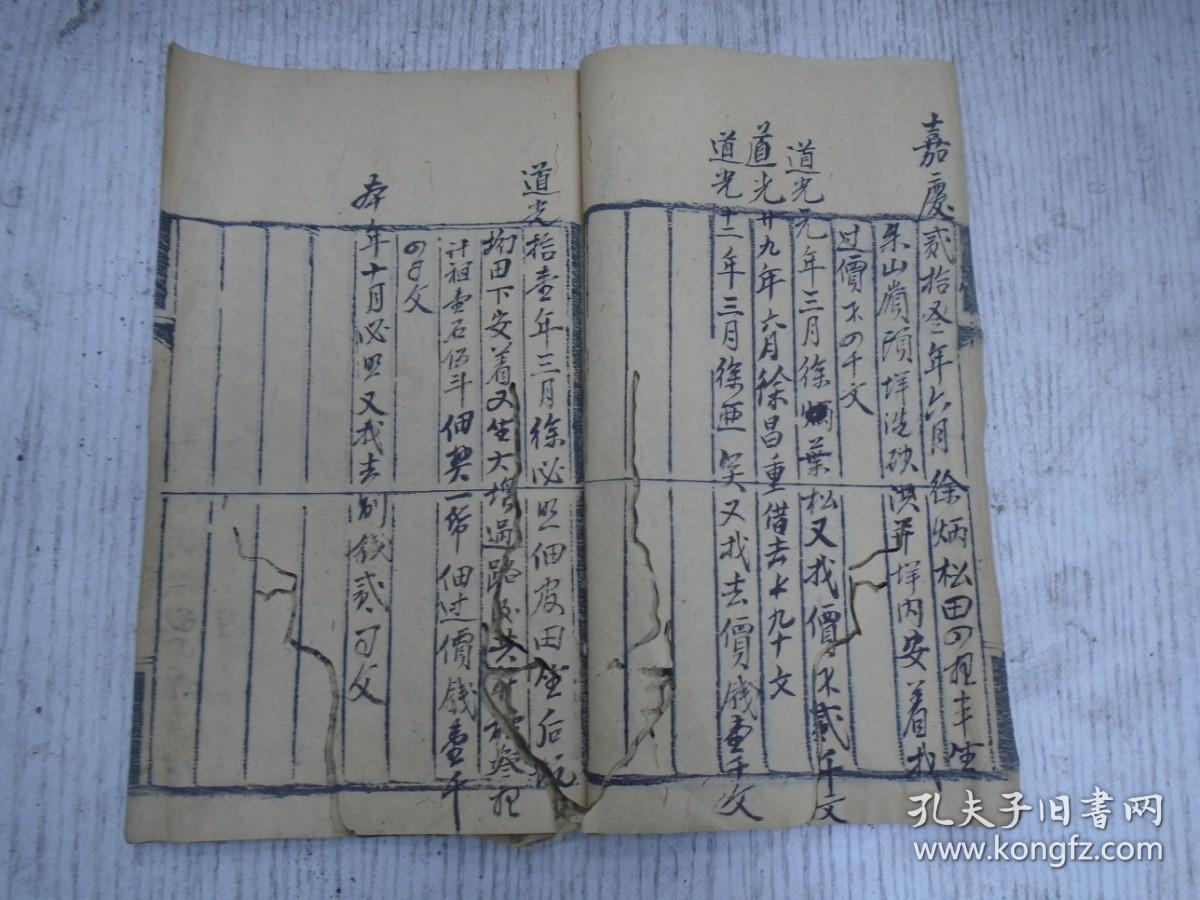 嘉慶貳拾叁年六月徐炳松田四担半坐
朱山嶺頭垟 并垟内安着找
过價 四千文
道光元年三月徐 葉松又找價 貳千文
道光廿九年六月徐昌重借去 九十文
道光十二年三月徐 又找去價錢壹千文
道光拾壹年三月徐必照佃皮田坐后
田下安着又坐大 過路
计租壹石伍斗佃契一帋佃过價錢壹千
四百文
本年十月必照又找去 錢貳百文
孔夫子旧书网
www.kongfz.com